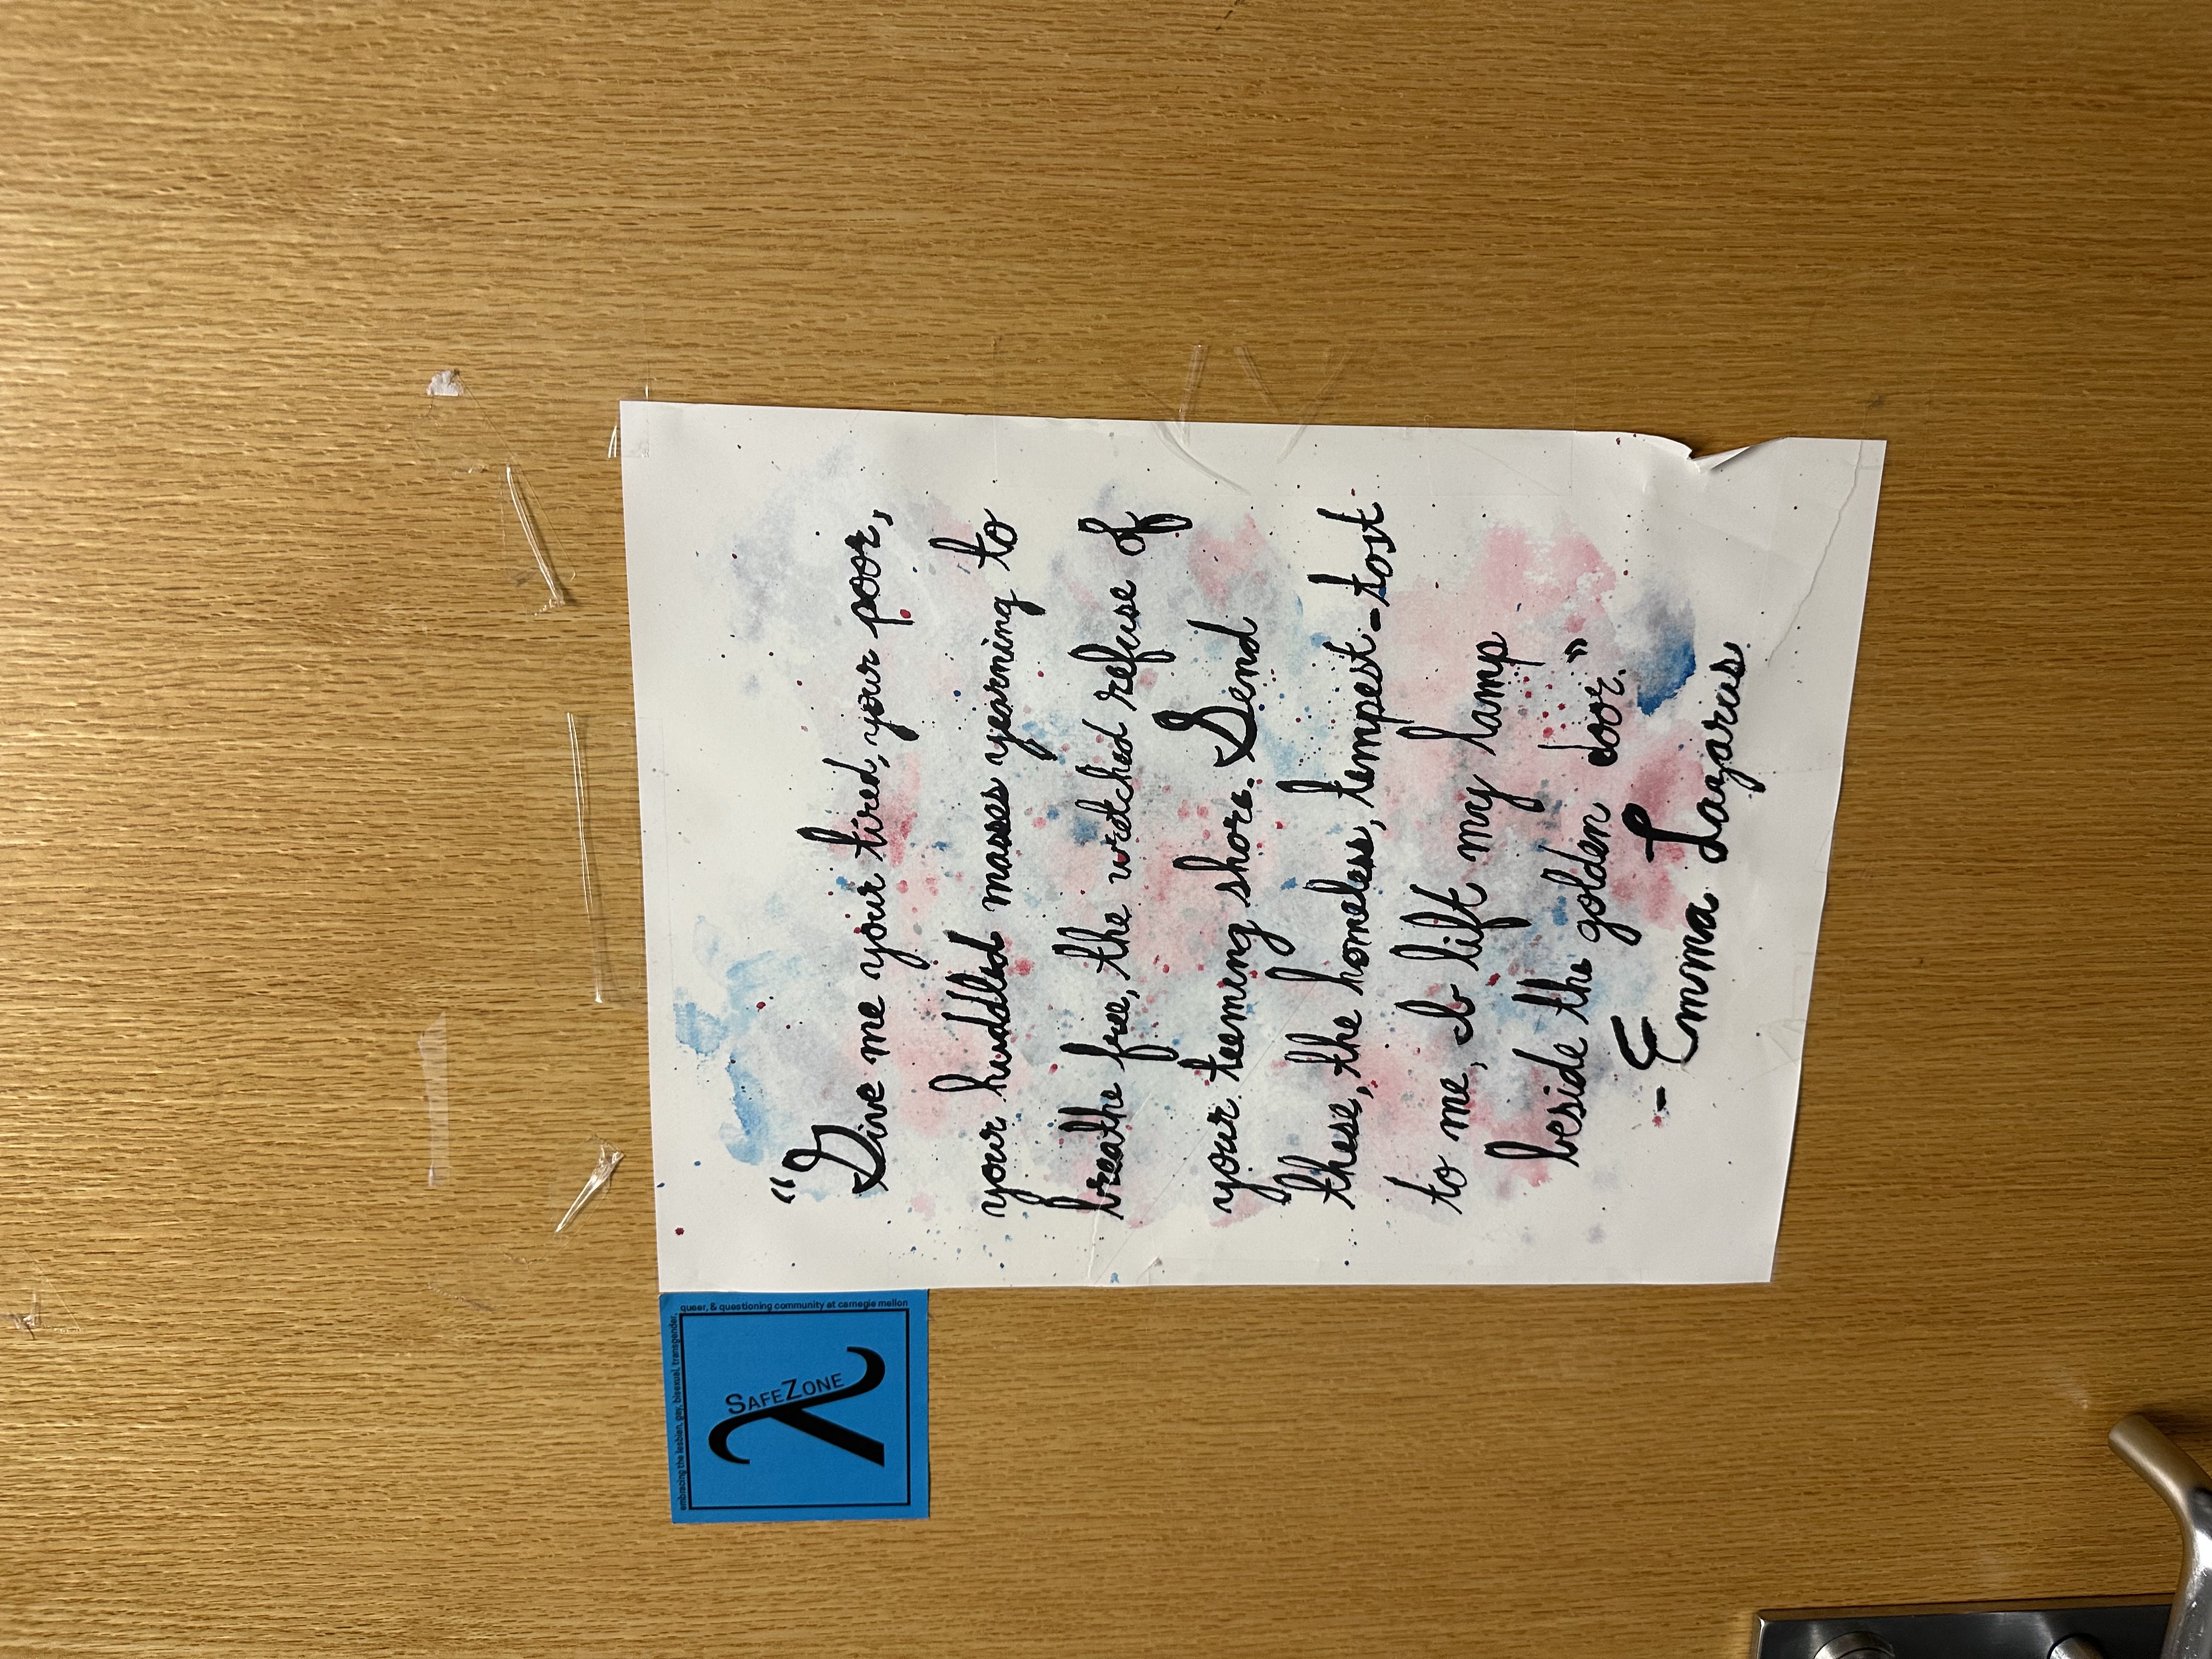 "Give me your tired, your poor,
your huddled masses yearning to
breathe free, the wretched refuse of
your teeming shore. Send
these, the homeless, tempest-tost
to me, I lift my lamp
beside the golden door."
- Emma Lazarus
embracing the lesbian, gay, bisexual, transgender,
queer, & questioning community at carnegie mellon
SAFEZONE
λ